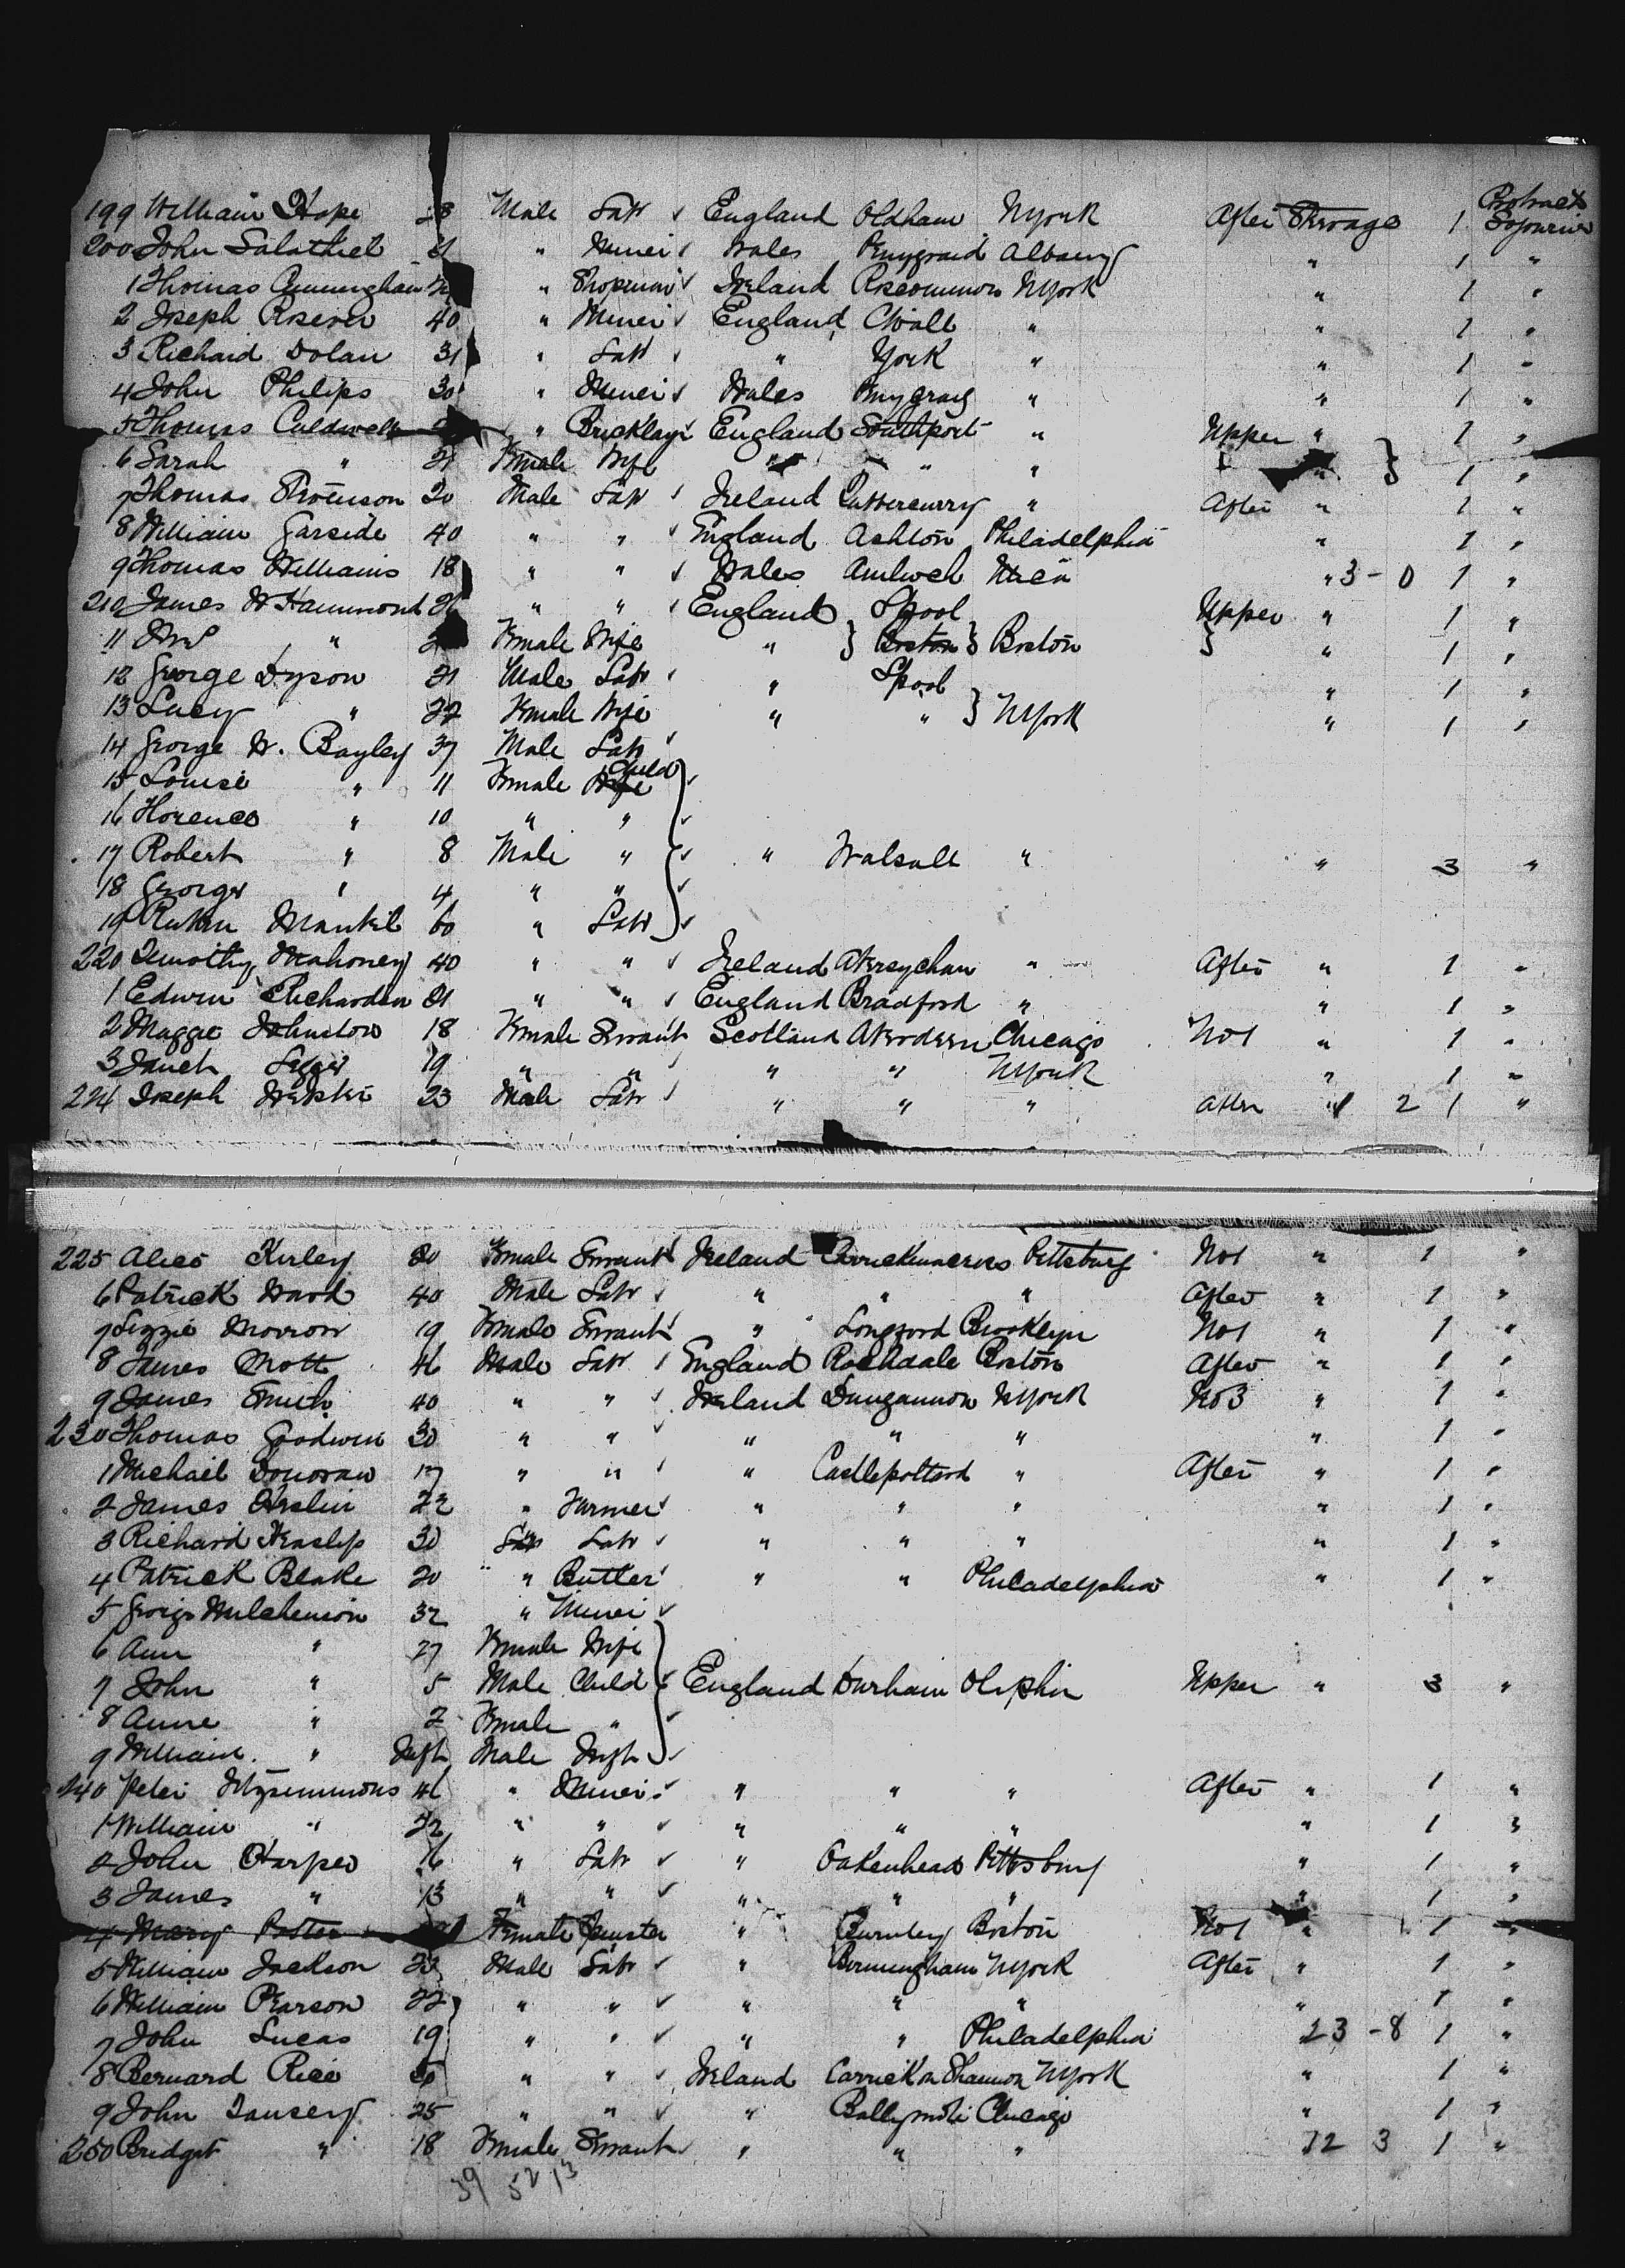 Protract
199 William Hope 28 Male Labr England Oldham NYork After Steerage 1 Sojourner
200 John Salathiel 21 " Miner Wales Penygraid Albany " 1 "
1 Thomas Cunningham " Shopman Ireland Roscommon NYork " 1 "
2 Joseph 40 " Miner England CWall " " 1 "
3 Richard Dolan 31 " Labr " York " " 1 "
4 John Philips 30 " Miner Wales Penygraig " " 1 "
5 Thomas Caldwell " Bricklayr England Southport " Upper " 1 "
6 Sarah " 21 Female Wife " " " " } 1 "
7 Thomas 20 Male Labr Ireland " After " 1 "
8 William Garside 40 " " England Ashton Philadelphia " 1 "
9 Thomas Williams 18 " " Wales Amlwch Utica " 3-0 1 "
210 James W Hammond 26 " " England Lpool Upper " 1 "
11 Mrs " Female Wife " } Boston } Boston } " 1 "
12 George Dyson 21 Male Labr " Lpool " 1 "
13 Lucy " 22 Female Wife " " } NYork " 1 "
14 George W. Bayley 37 Male Labr
15 Louise " 11 Female Child
16 Florence " 10 " "
17 Robert " 8 Male " " Walsall " " 3 "
18 George " 4 " "
19 60 " Labr
220 Timothy Mahoney 40 " " Ireland " After " 1 "
1 Edwin Richardson 21 " " England Bradford " " 1 "
2 Maggie Johnston 18 Female Servant Scotland Aberdeen Chicago No1 " 1 "
3 Janet 19 " " " " NYork " 1 "
224 Joseph Webster 23 Male Labr " " " After " 1 2 1 "
225 Alice Kirley 20 Female Servant Ireland Carrickmacross Pittsburg No1 " 1 "
6 Patrick Ward 40 Male Labr " " " After " 1 "
7 Lizzie Morrow 19 Female Servant " Longford Brooklyn No1 " 1 "
8 James Mott 46 Male Labr England Rochdale Boston After " 1 "
9 James Smith 40 " " Ireland Dungannon NYork No3 " 1 "
230 Thomas Goodwin 30 " " " " " " 1 "
1 Michael Donovan 17 " " " Castlepollard " After " 1 "
2 James 22 " Farmer " " " " 1 "
3 Richard Heaslip 30 " Labr " " " " 1 "
4 Patrick Blake 20 " Butler " " Philadelphia " 1 "
5 George Mitchenson 32 " Miner
6 Ann " 27 Female Wife
7 John " 5 Male Child England Durham Olyphin Upper " 3 "
8 Anne " 2 Female "
9 William " Inft Male Inft
240 Peter Fitzsimmons 46 " Miner " " " After " 1 "
1 William " 22 " " " " " " 1 "
2 John Harper 16 " Labr " Oakenhead Pittsburg " 1 "
3 James " 13 " " " " " " 1 "
4 Mary Potter Female " Burnley Boston No1 " 1 "
5 William Jackson 23 Male Labr " Birmingham NYork After " 1 "
6 William Pearson 22 " " " " " " 1 "
7 John Lucas 19 " " " " Philadelphia 23-8 1 "
8 Bernard Rice " " Ireland Carrick on Shannon NYork " 1 "
9 John Tansey 25 " " " Ballymote Chicago " 1 "
250 Bridget " 18 Female Servant " " " 12 3 1 "
39 52 13